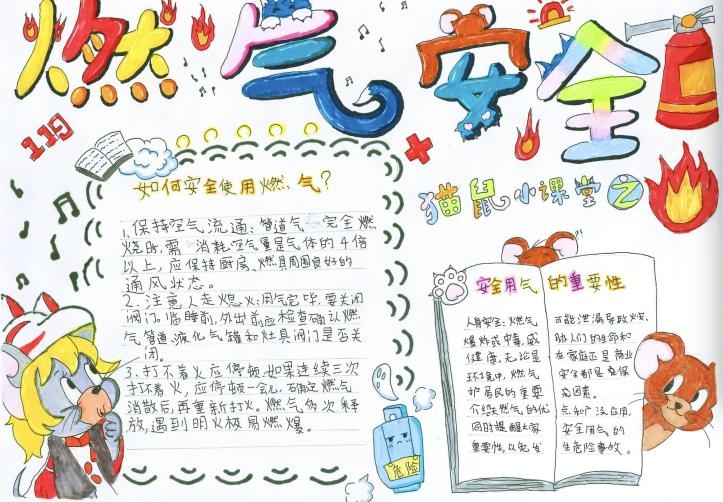 燃气安全
119
猫鼠小课堂之
如何安全使用燃气?
1.保持空气流通:管道气 完全燃
烧时,需 消耗空气量是气体的4倍
以上,应保持厨房、燃具周围良好的
通风状态。
2.注意人走熄火:用气完毕,要关闭
阀门。临睡前,外出前应检查确认燃
气管道、液化气罐和灶具阀门是否关
闭。
3.打不着火应停顿.如果连续三次
打不着火,应停顿一会儿,确定燃气
消散后,再重新打火。燃气多次释
放,遇到明火极易燃爆。
危险
安全用气的重要性
人身安全:燃气
爆炸或中毒,威
健康,无论是
环境中,燃气
护居民的重要
介绍燃气的优
同时提醒大家
重要性,以免发
可能泄漏导致火灾、
胁人们的生命和
在家庭还是商业
安全都是
因素。
点和广泛应用,
安全用气的
生危险事故。